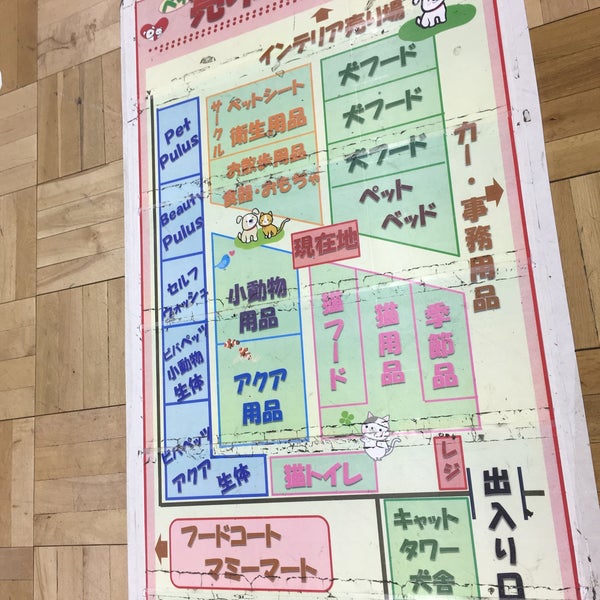 インテリア売り場
犬フード
犬フード
犬フード
ペット
ベッド
サークル
ペットシート
衛生用品
お散歩用品
食器・おもちゃ
カー・事務用品
Pet
Pulus
Beauty
Pulus
セルフ
ウォッシュ
ビバペッツ
小動物
生体
ビバペッツ
アクア
生体
現在地
小動物
用品
アクア
用品
猫フード
猫用品
季節品
猫トイレ
レジ
出入り口
フードコート
マミーマート
キャット
タワー
犬舎